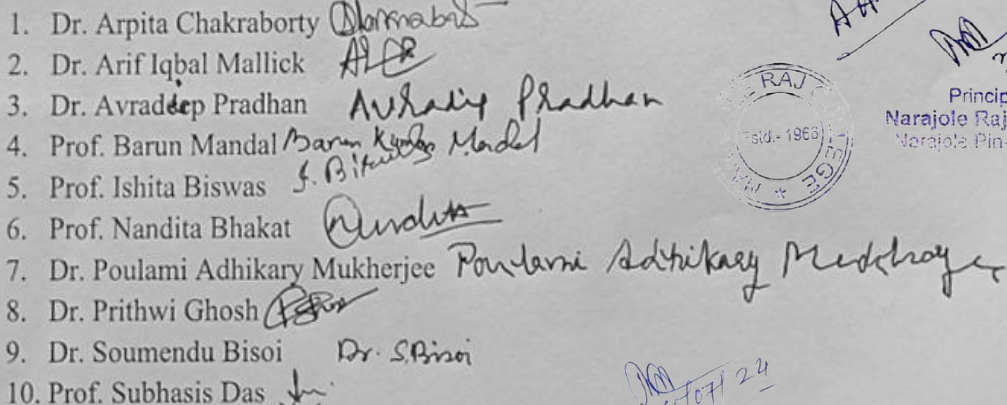 1. Dr. Arpita Chakraborty
2. Dr. Arif Iqbal Mallick
3. Dr. Avradeep Pradhan Avradip Pradhan
4. Prof. Barun Mandal Barun Kumar Mandal
5. Prof. Ishita Biswas I. Biswas
6. Prof. Nandita Bhakat Nandita
7. Dr. Poulami Adhikary Mukherjee Poulami Adhikary
8. Dr. Prithwi Ghosh
9. Dr. Soumendu Bisoi Dr. S.Bisoi
10. Prof. Subhasis Das
RAJ
Estd.- 1966
Princip
Narajole Raj
Narajole Pin-
/07/24